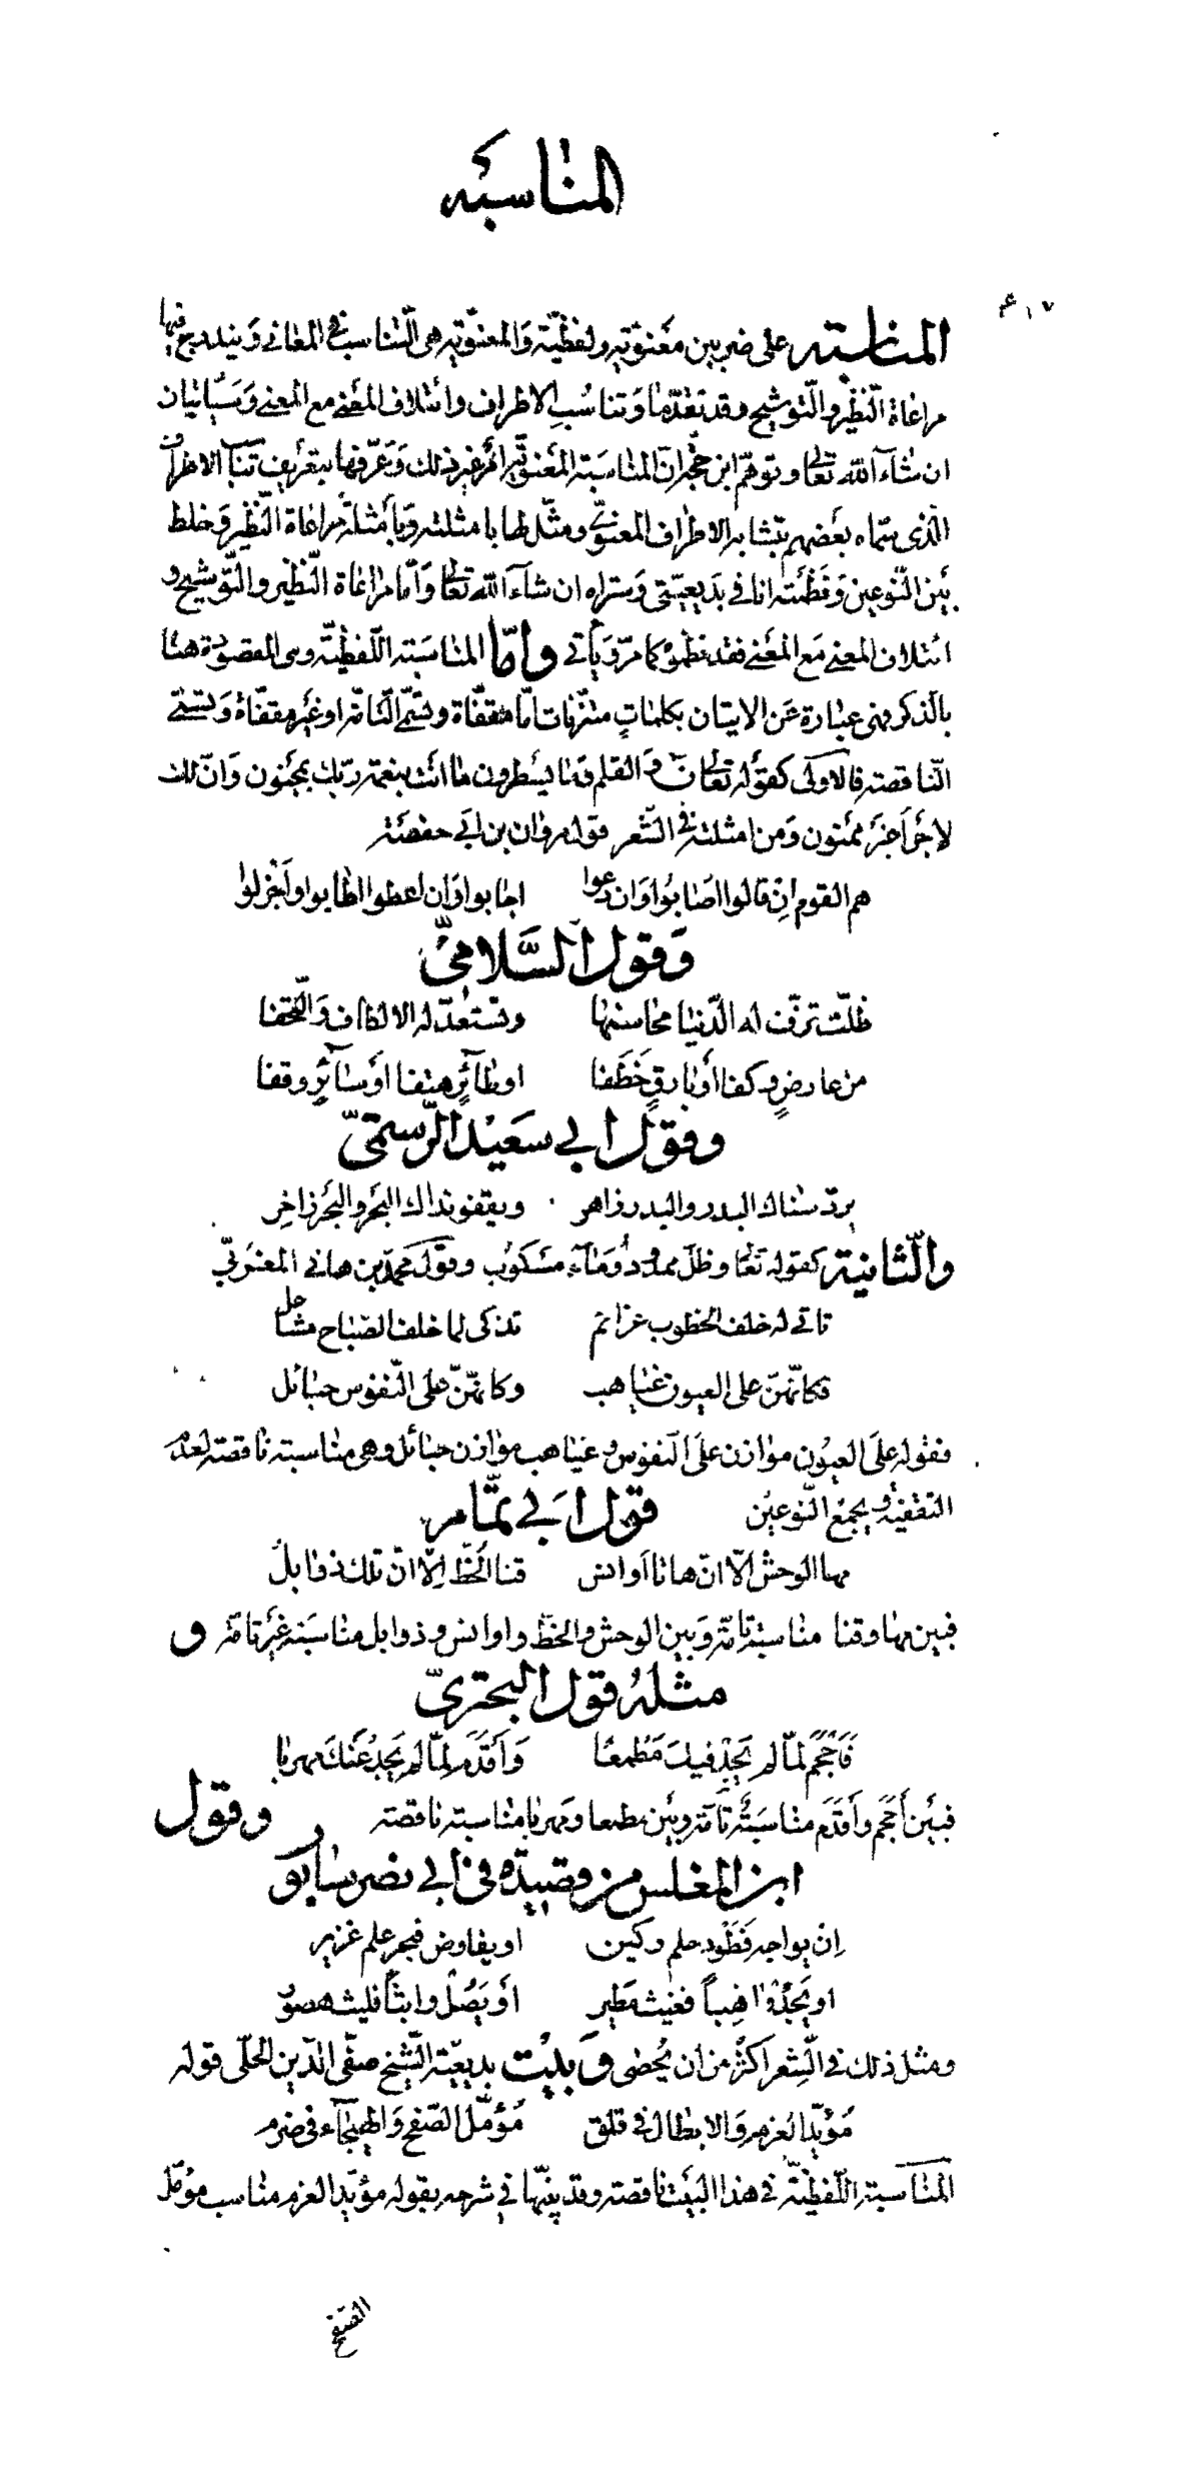 المناسبة
المناسبة على ضربين معنوية ولفظية والمعنوية هي التناسب في المعاني ويندرج فيها
مراعاة النظير والتوشيح وقد تقدما وتناسب الاطراف وائتلاف المعنى مع المعنى وسيأتيان
ان شاء الله تعالى وتوهم ابن حجة ان المناسبة المعنوية امر غير ذلك وعرفها بتعريف تناسب الاطراف
الذي سماه بعضهم بتشابه الاطراف المعنوي ومثل لها بامثلته وبأمثلة مراعاة النظير وخلط
بين النوعين ونظمته انا في بديعيتي وستراه ان شاء الله تعالى وأما مراعاة النظير والتوشيح و
ائتلاف المعنى مع المعنى فقد نظموه كما مر ويأتي وأما المناسبة اللفظية وهي المقصودة هنا
بالذكر فهي عبارة عن الاتيان بكلمات متزنات اما مقفاة وتسمى التامة او غير مقفاة وتسمى
الناقصة فالاولى كقوله تعالى ن والقلم وما يسطرون ما انت بنعمة ربك بمجنون وان لك
لاجرا غير ممنون ومن امثلته في الشعر قول مروان بن ابي حفصة
هم القوم ان قالوا اصابوا وان دعوا اجابوا وان اعطوا اطابوا وأجزلوا
وقول السلامي
ظلت تزف له الدنيا محاسنها وتستعد له الالطاف والتحفا
من عارض وكفا أو بارق خطفا او طائر هتفا أو سائر وقفا
وقول ابي سعيد الرستمي
يرد سناك البدر والبدر زاهر ويقفو نداك البحر والبحر زاخر
والثانية كقوله تعالى وظل ممدود وماء مسكوب وقول محمد بن هاني المغربي
تاتي له خلف الخطوب عزائم تذكى لها خلف الصباح مشاعل
فكانهن على العيون غياهب وكانهن على النفوس حبائل
فقوله على العيون موازن على النفوس وغياهب موازن حبائل وهي مناسبة ناقصة لعدم
التقفية ويجمع النوعين قول ابي تمام
مها الوحش الا ان هاتا اوانس قنا الخط الا ان تلك ذوابل
فبين مها وقنا مناسبة تامة وبين الوحش والخط واوانس وذوابل مناسبة غير تامة و
مثله قول البحتري
فأحجم لما لم يجد فيك مطمعا وأقدم لما لم يجد عنك مهربا
فبين أحجم وأقدم مناسبة تامة وبين مطمعا ومهربا مناسبة ناقصة وقول
ابن المغلس من قصيدة في ابي نصر سابور
ان يواجه فطود حلم ركين او يفاوض فبحر علم غزير
او يجد واهبا فغيث مطير أو يصل واثبا فليث هصور
ومثل ذلك في الشعر اكثر من ان يحصى وبيت بديعية الشيخ صفي الدين الحلي قوله
مؤيد العزم والابطال في قلق مؤمل الصفح والهيجاء في ضرم
المناسبة اللفظية في هذا البيت ناقصة وقد بينها في شرحه بقوله مؤيد العزم مناسب مؤمل
الصفح